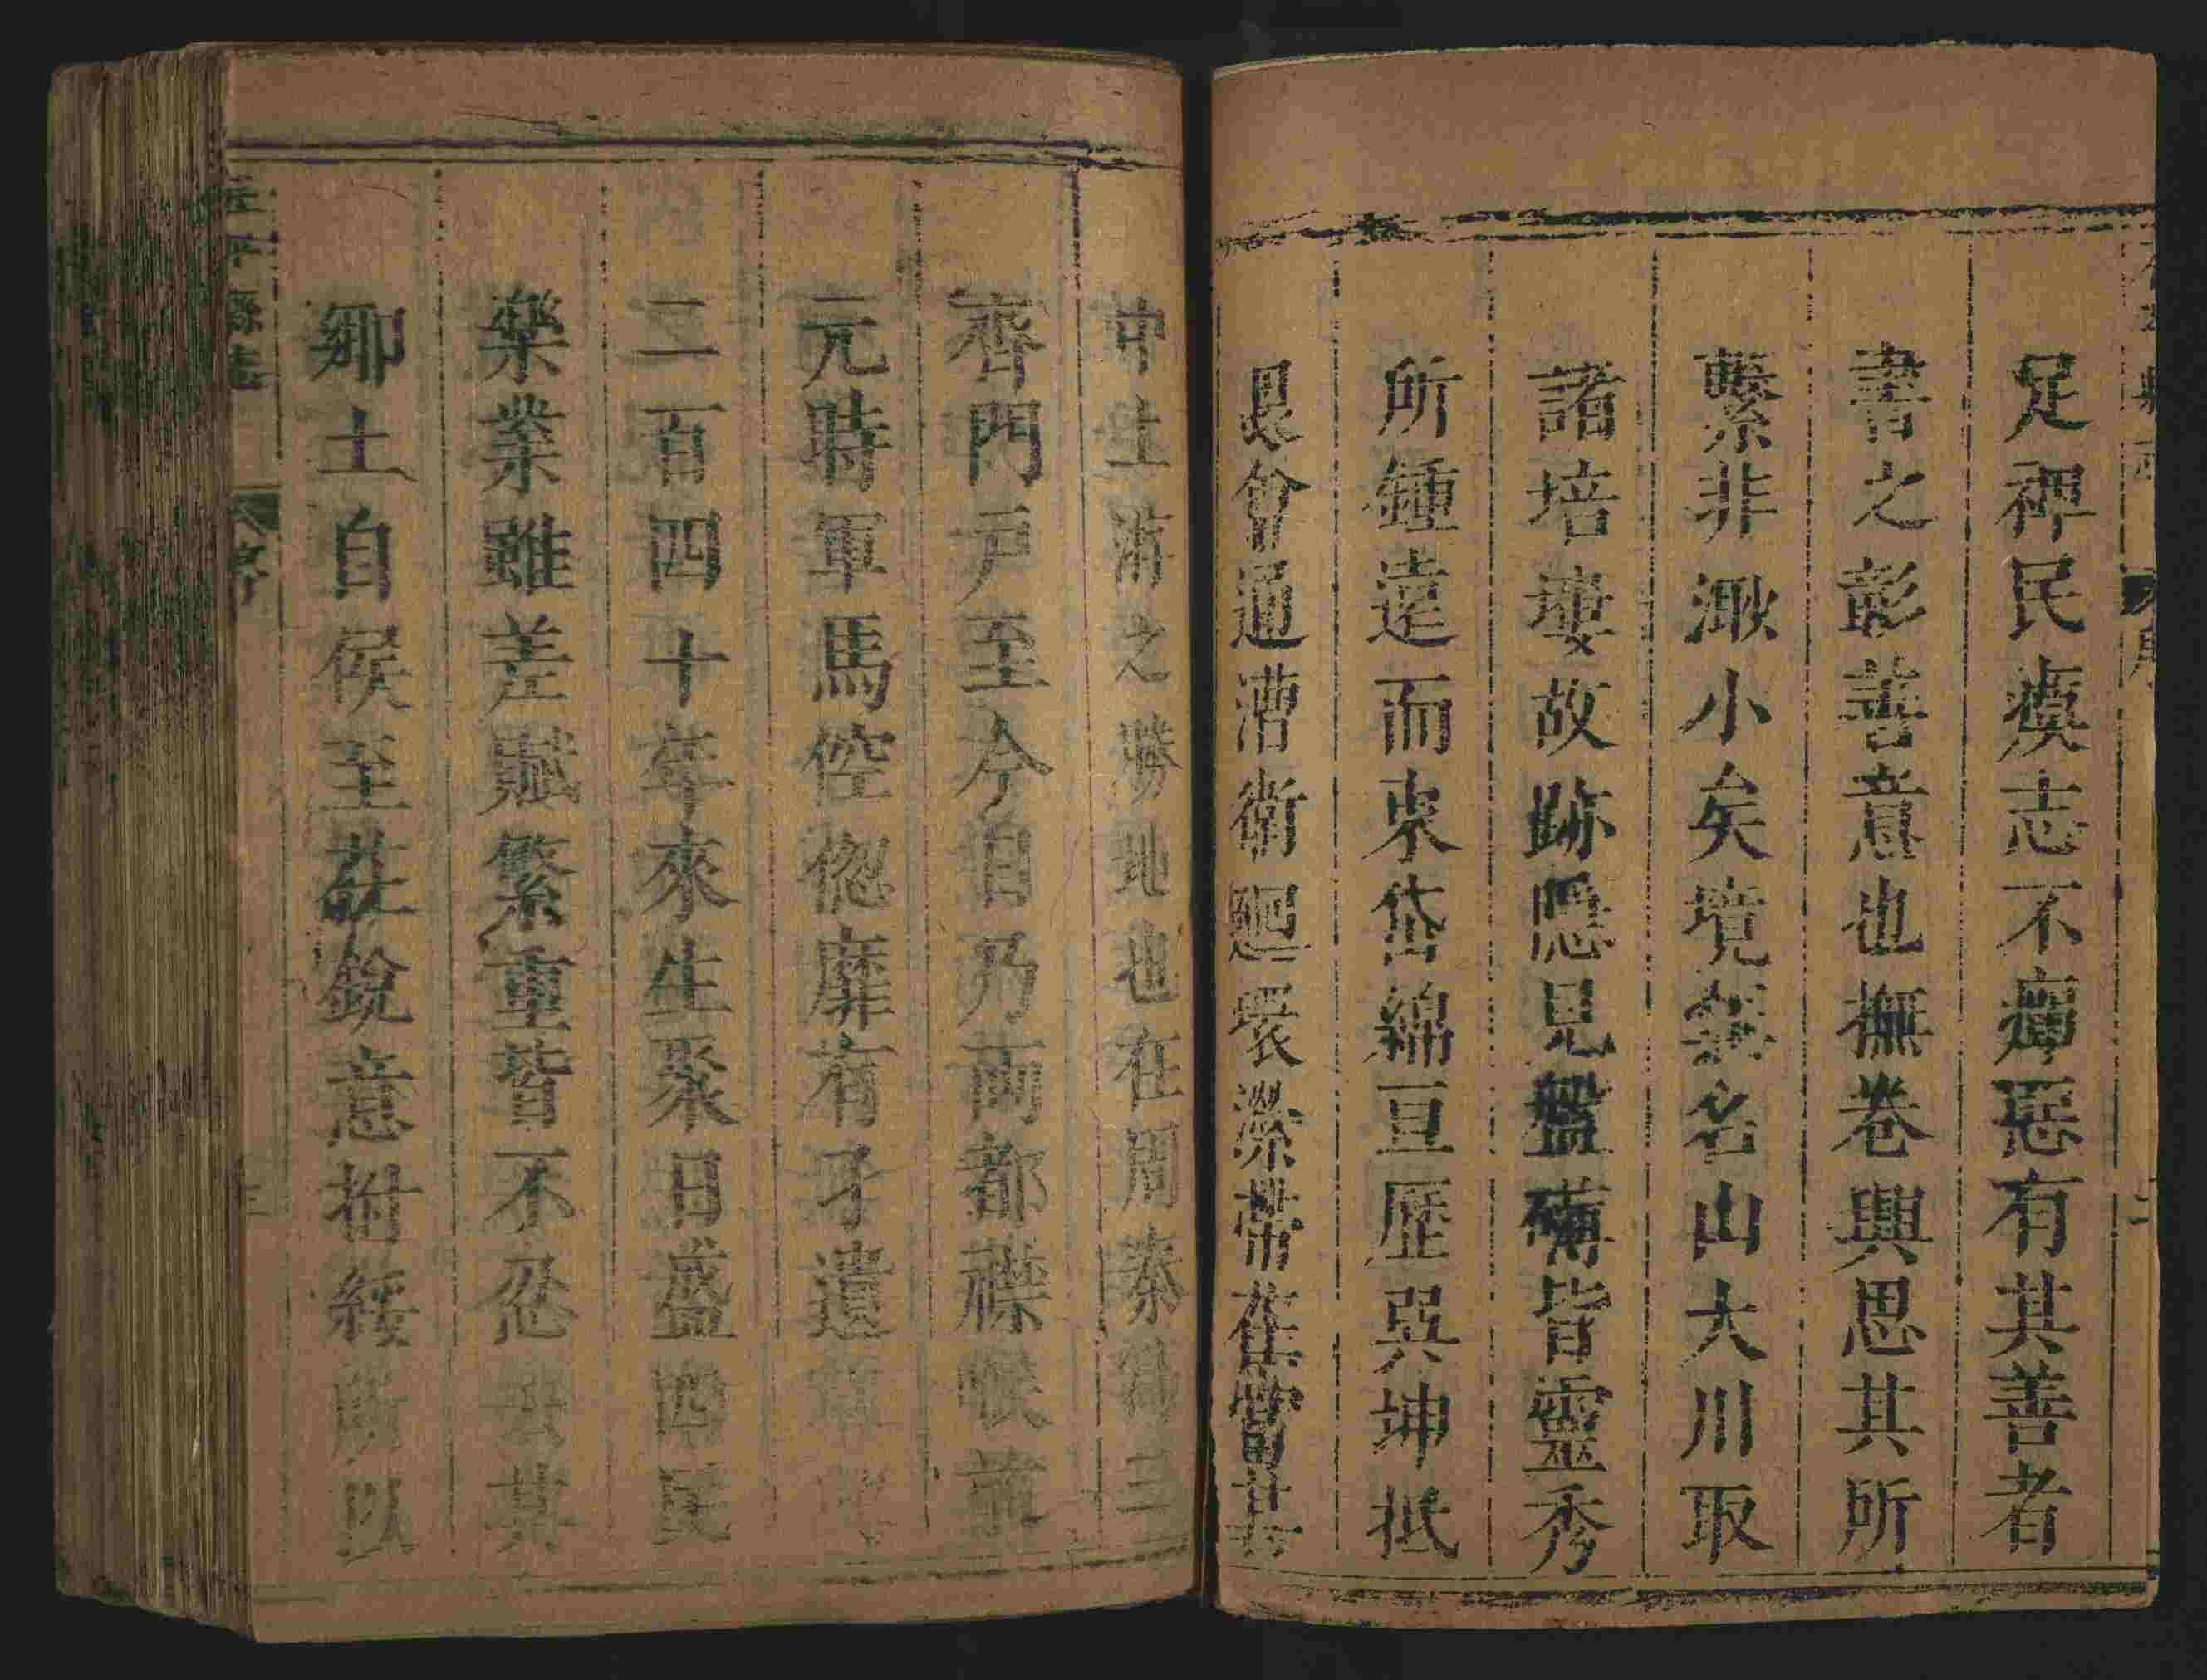 足裨民瘼志不癉惡有其善者
書之彰善意也撫卷興思其所
繫非渺小矣境無名山大川取
諸培塿故跡隱見盤礴皆靈秀
所鍾遠而東岱綿亘歷巽坤抵
艮會通漕衛廻環縈帶在
中土 之勝地也在周秦 三
齊門戶至今日乃兩都襟喉
元時軍馬倥偬靡有孑遺
二百四十年來生聚日盛 民
樂業雖差賦繁重皆不忍 其
鄉土自侯至蘇銳意拊綏所以
序